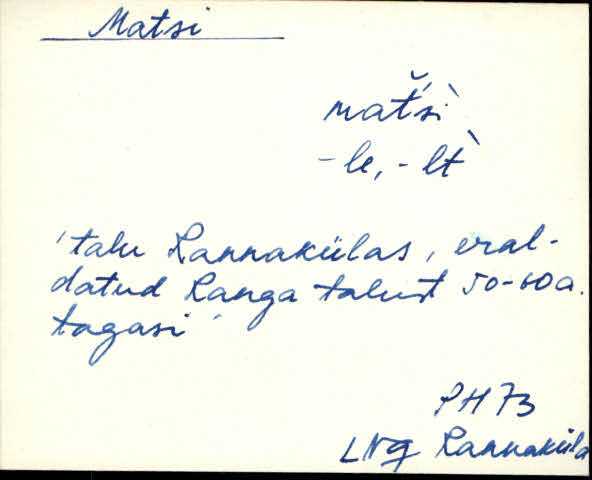 Matsi
maťsì
-le, -lt̀
'talu Rannakülas, eral-
datud Ranga talust 50-60a.
tagasi'
PH 73
LNg Rannaküla